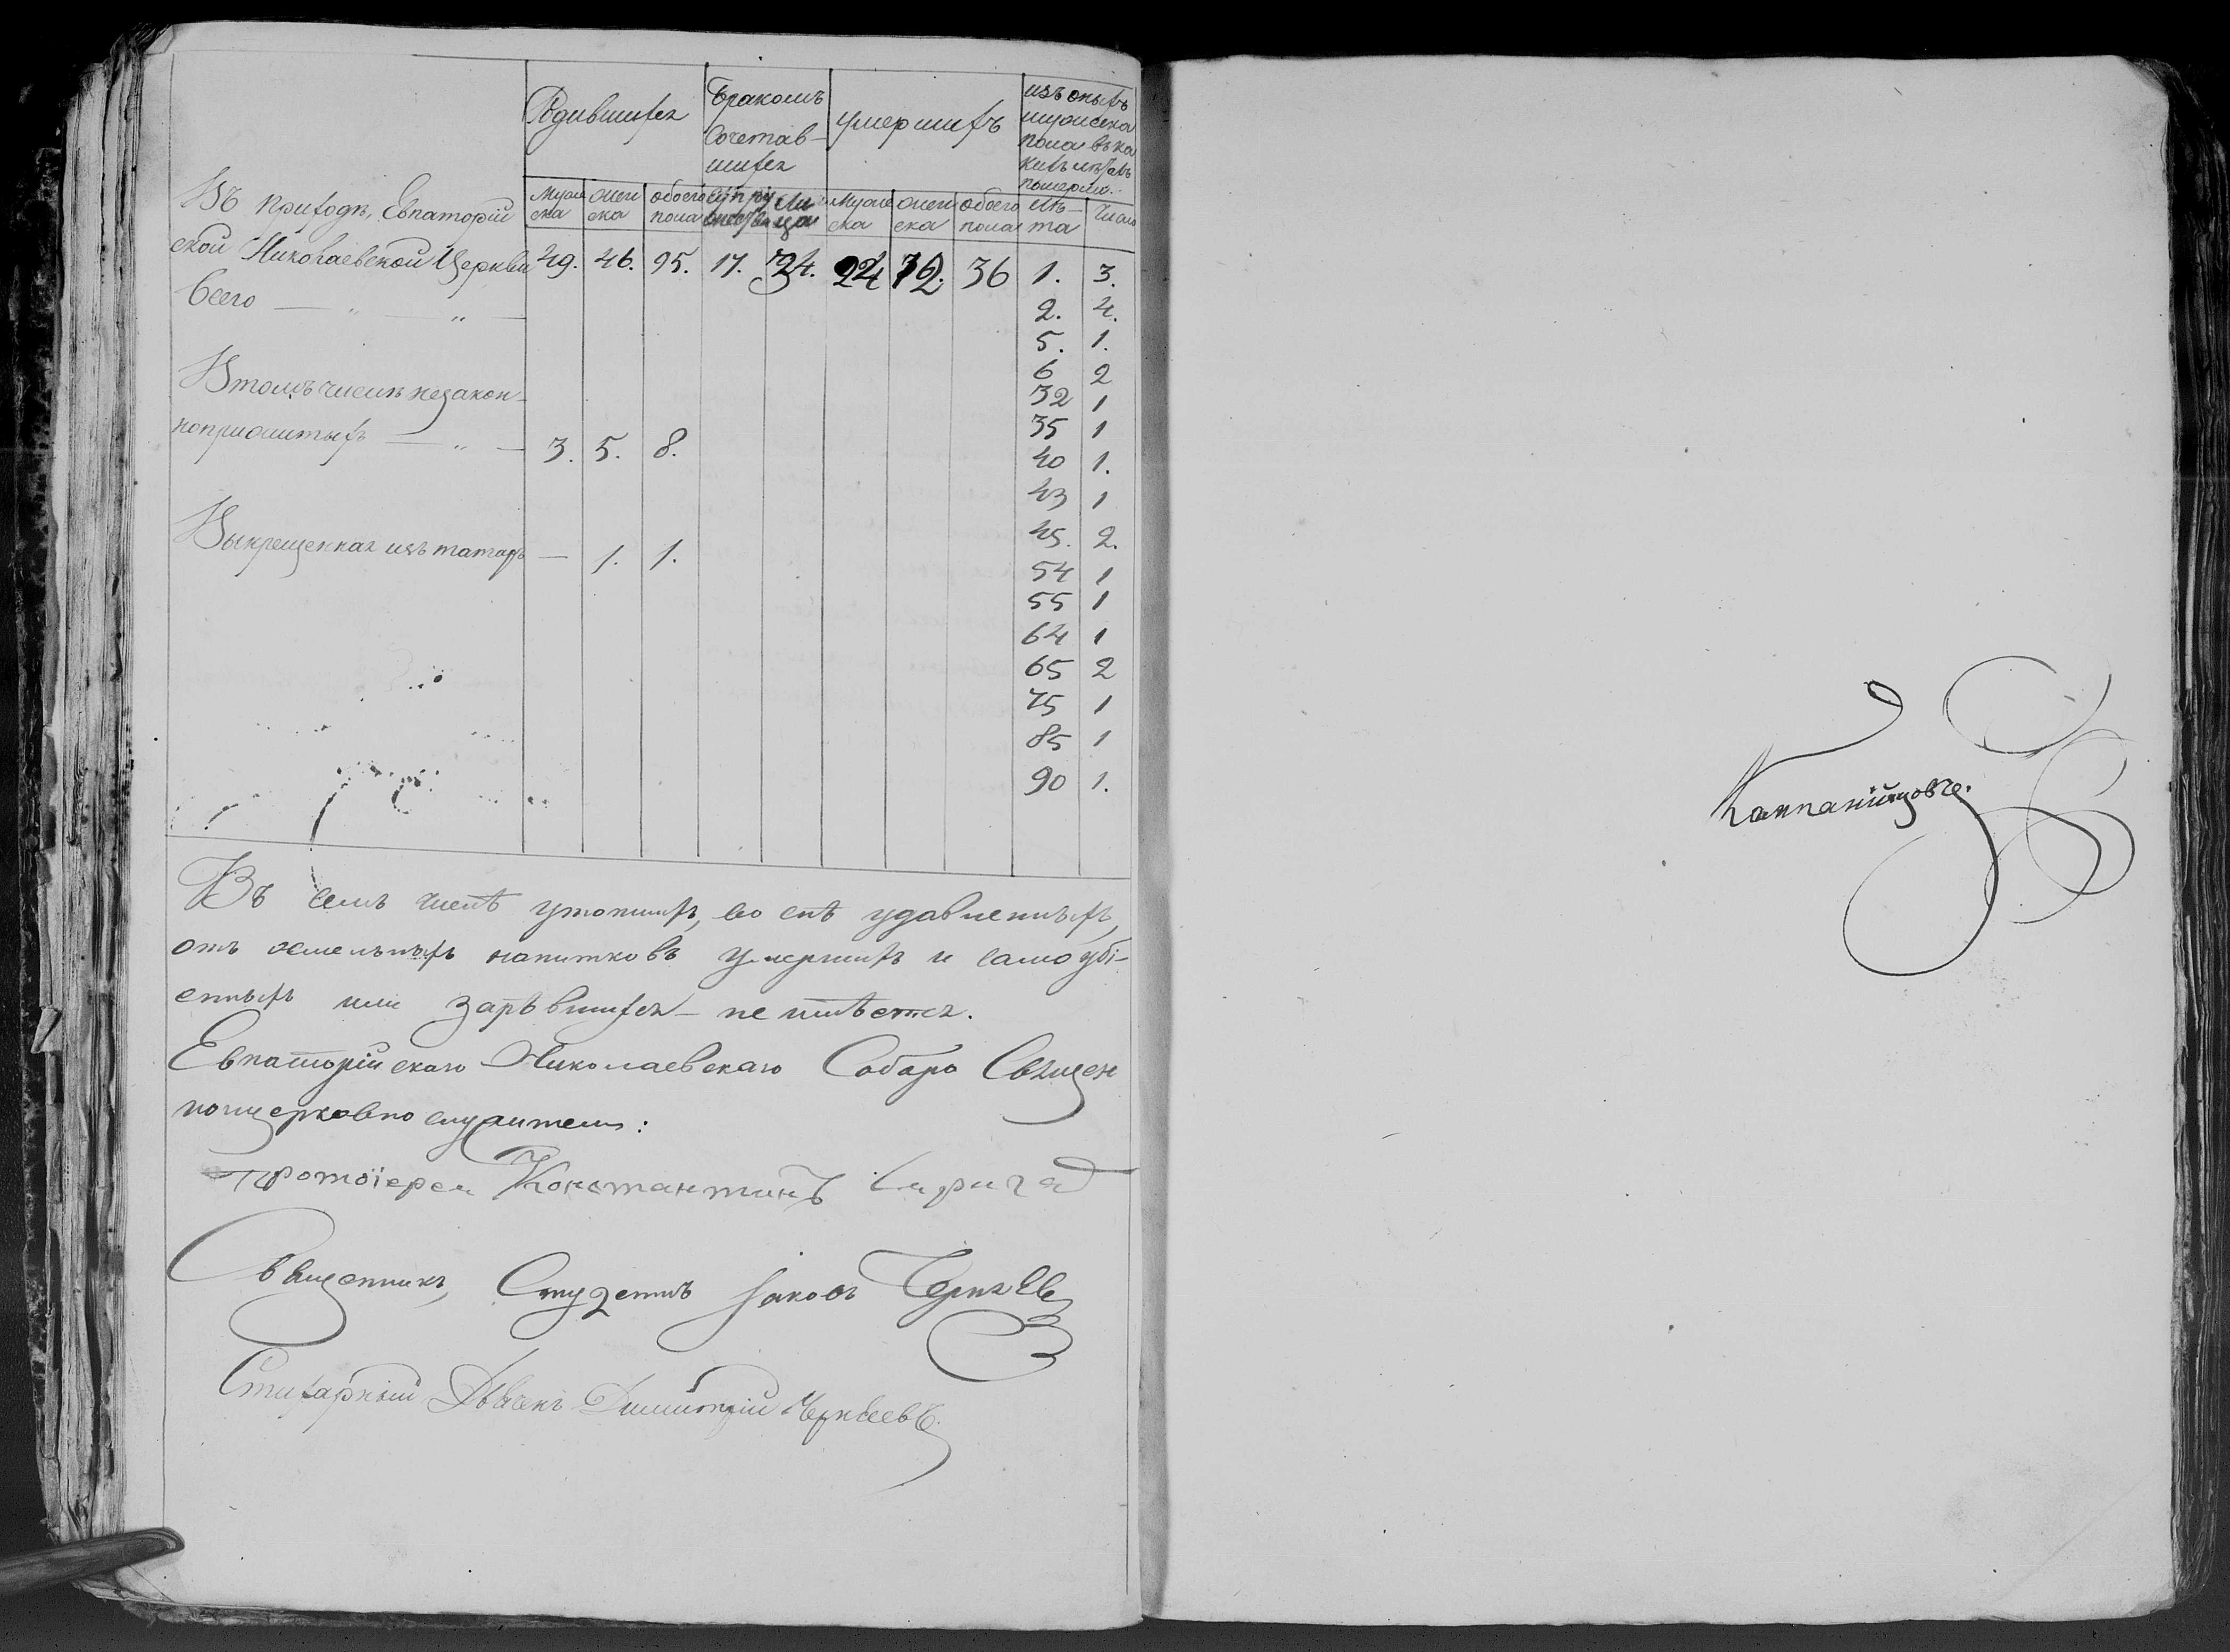 Родившихся
Бракомъ
Сочетав-
шихся
умершихъ
изъ оныхъ
мужеска
пола въ ка
кихъ лѣтахъ
померло.
Муже
ска
жен
ска
обоего
пола
супру
жествъ
ли
ца
Муже
ска
жен
ска
обоего
пола
Лѣ-
та
Число
Въ приходѣ, Евпаторій
ской Николаевской Церкви
49. 46. 95. 17. 34. 24 12. 36 1. 3.
всего — „ — „ —
2. 4.
5. 1.
6 2
Втомъ числѣ незакон-
32 1
ноприжитыхъ — „ —
3. 5. 8.
35 1
40 1.
43 1
45. 2.
Выкрещенная изъ татаръ — 1. 1.
54 1
55 1
64 1
65 2
75 1
85 1
90 1.
Въ семъ числѣ утопших, во снѣ удавленныхъ,
отъ хмельныхъ напитковъ умерших и самоубі-
енныхъ или зарѣвшихся — не имѣется.
Евпаторійскаго Николаевскаго Собора Священ
ноицерковнослужители:
Протоіерей Константинъ
Священникъ, Студентъ Іаковъ Черняев
Стихарный Дьячекъ Димитрій Чернѣевъ.
Компанійцовъ.